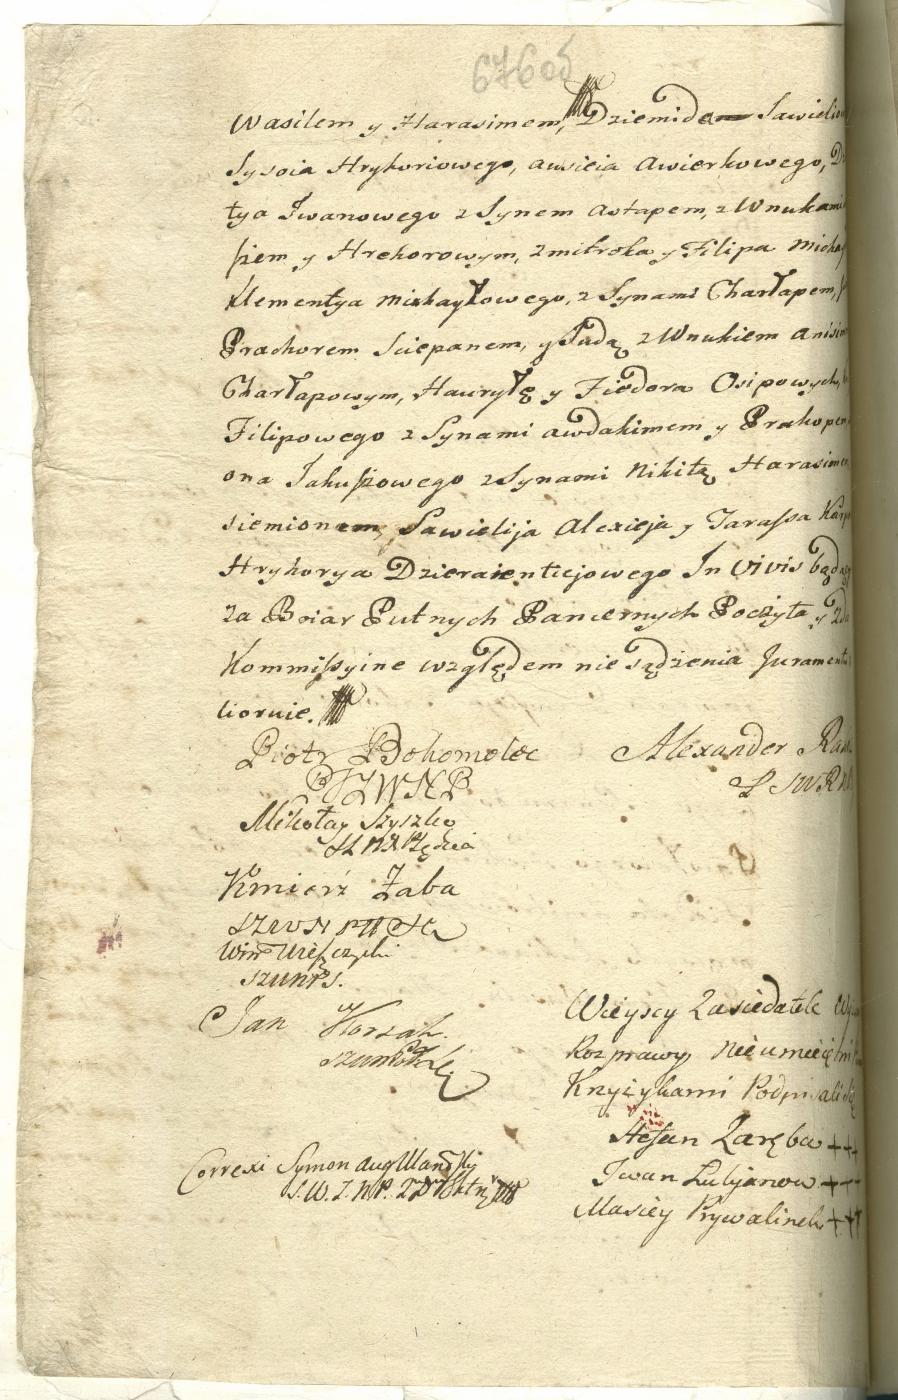 676 об
Wasilem y Harasimem, Dziemidem Sawielio
Sysoia Hrykoriowego, Ausieia Awierkowego, D
tya Iwanowego z Synem Astapem, z Wnukami
siem y Hrehorowym, Zmitroka y Filipa Micha
Klementya Michayłowego, z Synami Charłapem,
Prachorem Sciepanem, y Sadą z Wnukiem Anisim
Charłapowym, Hauryłę y Fiedora Osipowych,
Filipowego z Synami Awdakimem y Prakopem
ona Jakuszowego z Synami Nikitą Harasimem
siemionem, Sawielija Alexieja y Tarassa Karp
Hrykorya Dzieraientiejowego In Vivis będą
za Boiar Putnych Pancernych Poczyta y
Kommissyine względem nie sądzenia Jurament
liornie.
Piotr Bohomolec
Alexander Ra
PZWNP
Mikołay Szyszko
Kmierz Żaba
SZWN
Jan Korsak
Wieyscy Zasiedatele
Rozprawy Nieumieiętni
Krzyżykami Podpisali się
Stefan Zaręba +++
Iwan Lulijanow +++
Maciey Prywalinek +++
Correxi Symon Aug